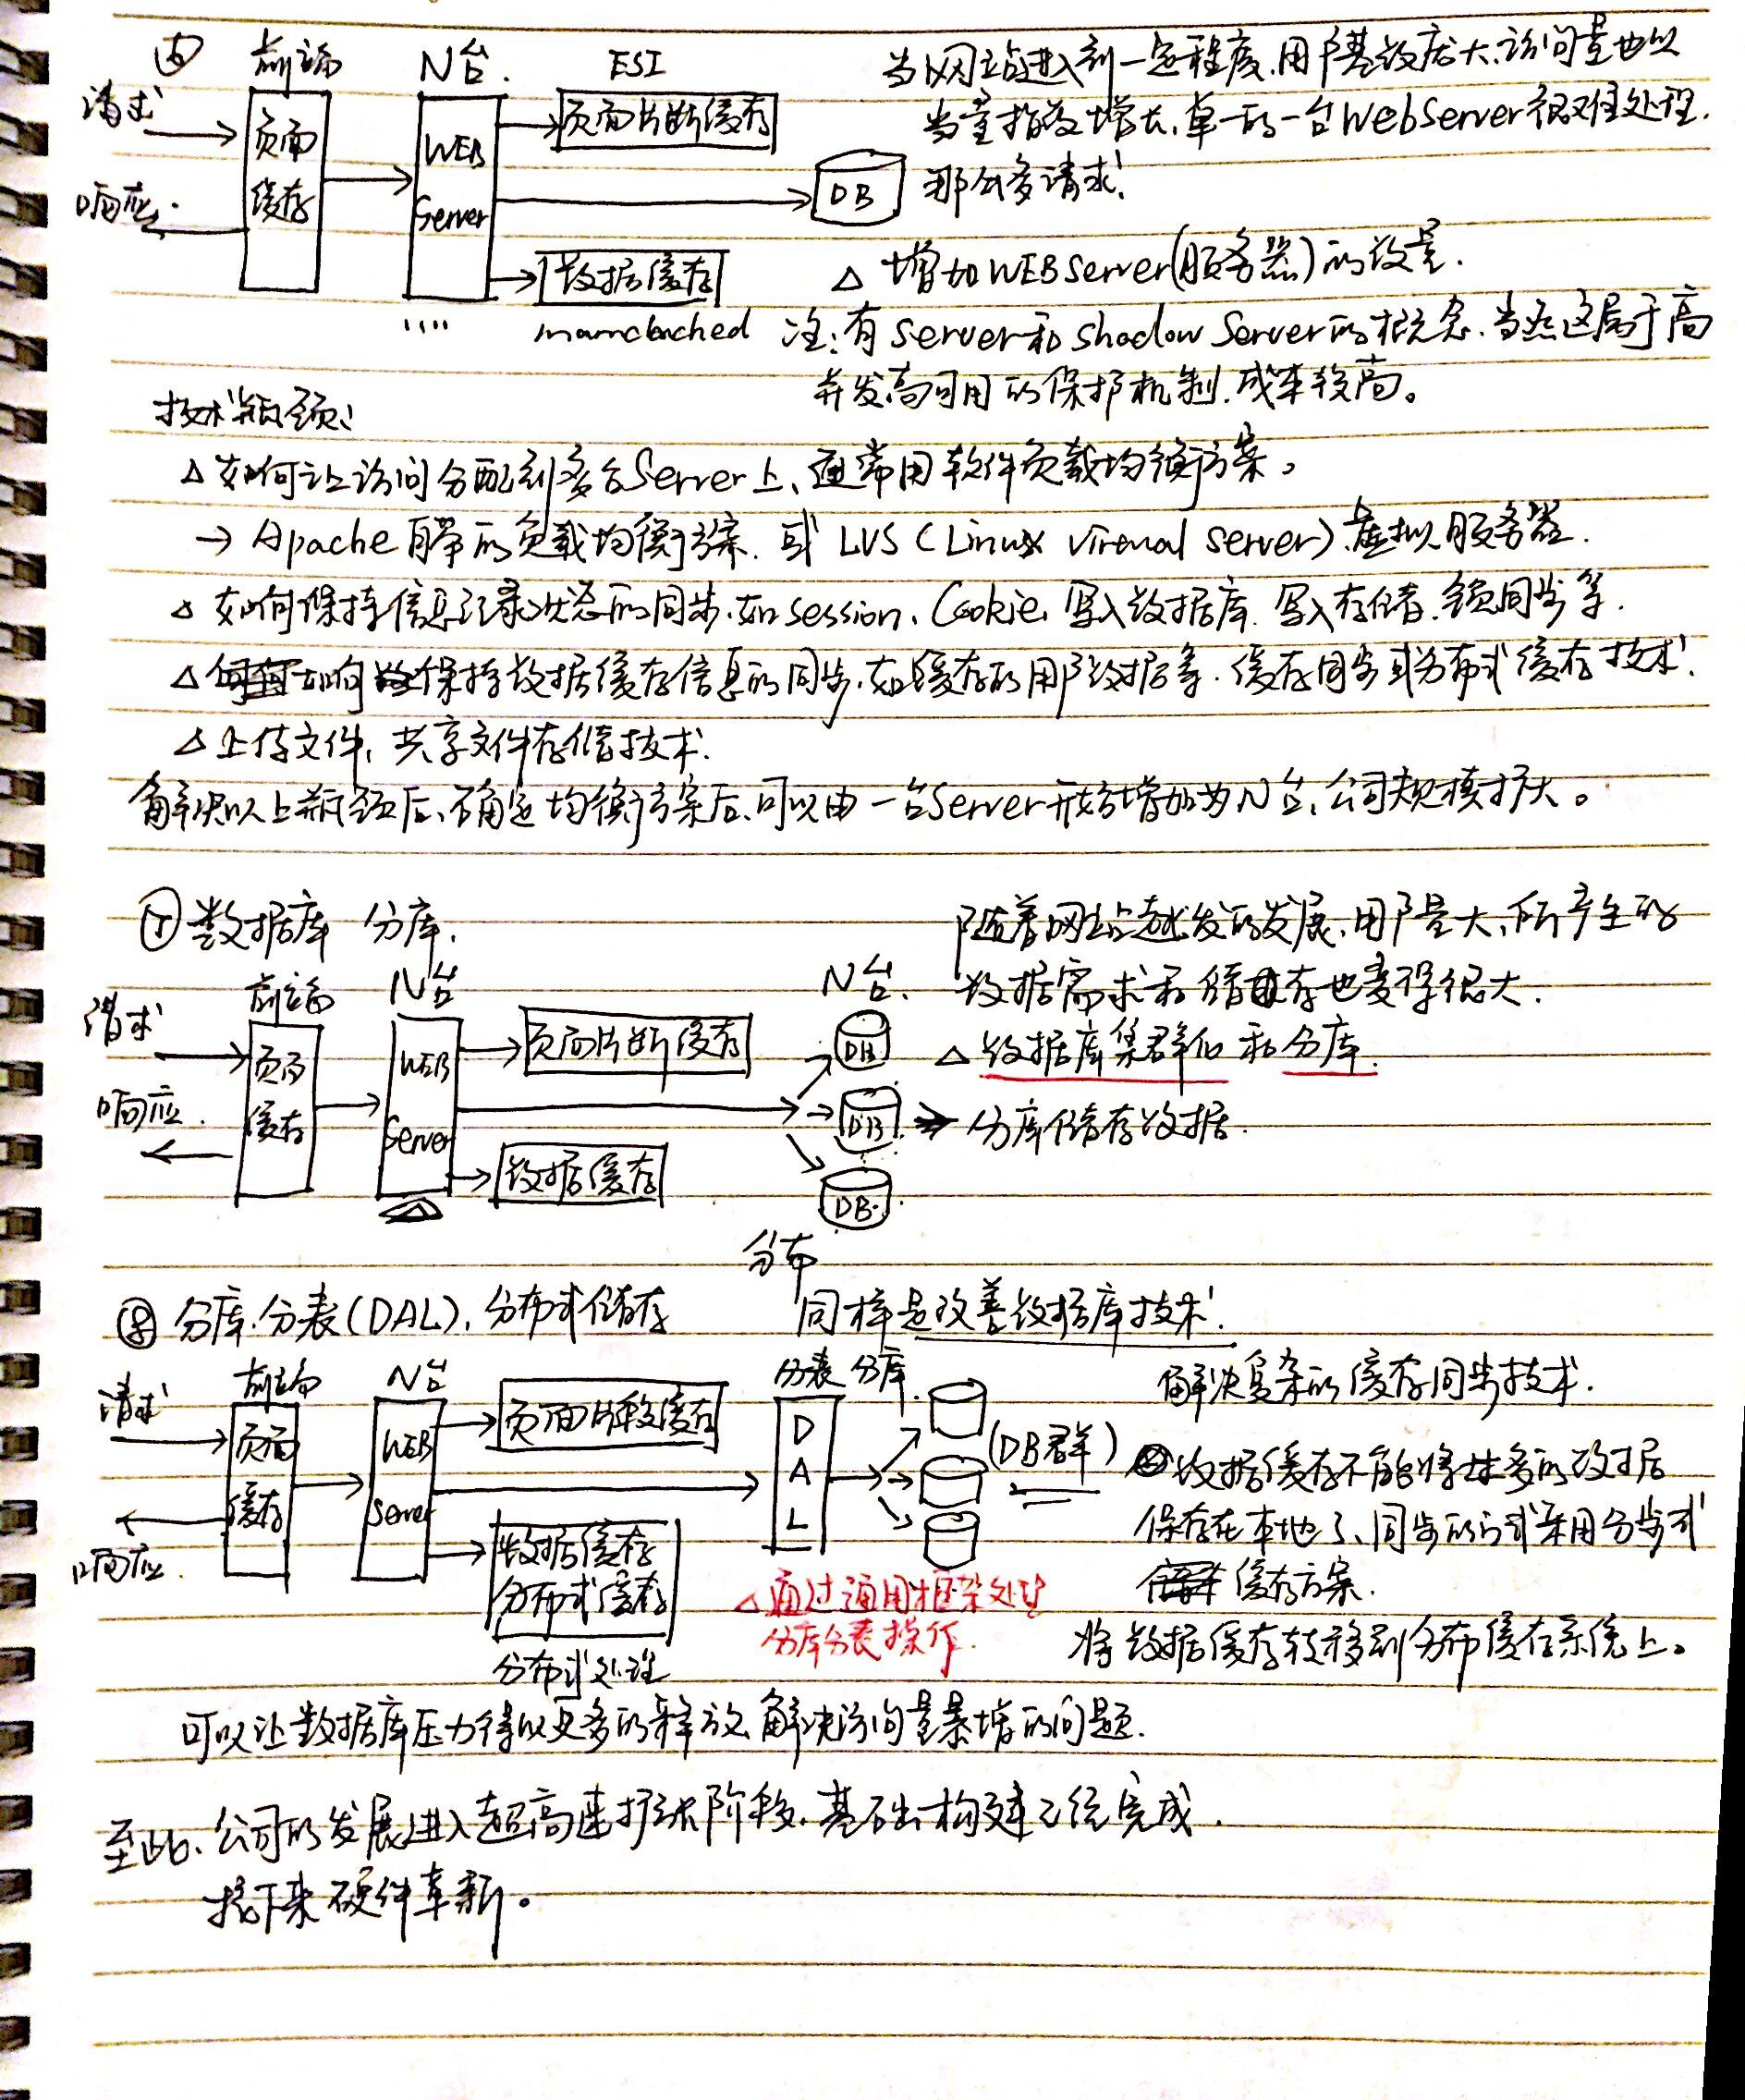 ⑥ 前端 N台. ESI
请求
页面缓存
WEB Server
页面片断缓存
DB
响应.
数据缓存
mamcbached
....
当网站进入到一定程度,用户基数庞大,访问量也以
当量指数增长,单一的一台WebServer很难处理.
那么多请求.
△ 增加WEB Server(服务器)的数量.
注:有server和shadow Server的概念.当然这属于高
并发高可用的保护机制.成本较高。
技术瓶颈:
△ 如何让访问分配到多台Server上、通常用软件负载均衡方案。
→ Apache自带的负载均衡方案.或 LVS (Linux Virtual Server)虚拟服务器.
△ 如何保持信息记录状态的同步.如session、Cookie、写入数据库.写入存储.锁同步等.
△ 如何保持数据缓存信息的同步.如缓存的用户数据等.缓存同步或分布式缓存技术.
△ 上传文件,共享文件存储技术.
解决以上瓶颈后、确定均衡方案后、可以由一台Server开始增加为N台,公司规模扩大。
⑦ 数据库 分库.
请求 前端 N台 N台.
页面缓存
WEB Server
页面片断缓存
DB
DB
DB.
响应.
数据缓存
随着网站越发的发展、用户量大、所产生的
数据需求和储存也变得很大.
△ 数据库集群化和分库.
分库储存数据.
分布
⑧ 分库.分表(DAL),分布式储存 同样是改善数据库技术.
请求 前端 N台 分表 分库.
页面缓存
WEB Server
页面片段缓存
DAL
(DB群)
响应.
数据缓存
分布式缓存
分布式处理
△ 通过通用框架处理
分库分表操作.
解决复杂的缓存同步技术.
数据缓存不能将太多的数据
保存在本地了、同步的方式采用分步式
缓存方案.
将数据缓存转移到分布缓存系统上。
可以让数据库压力得以更多的释放,解决访问量暴增的问题.
至此、公司的发展进入超高速扩张阶段.基础构建已经完成.
接下来硬件革新。